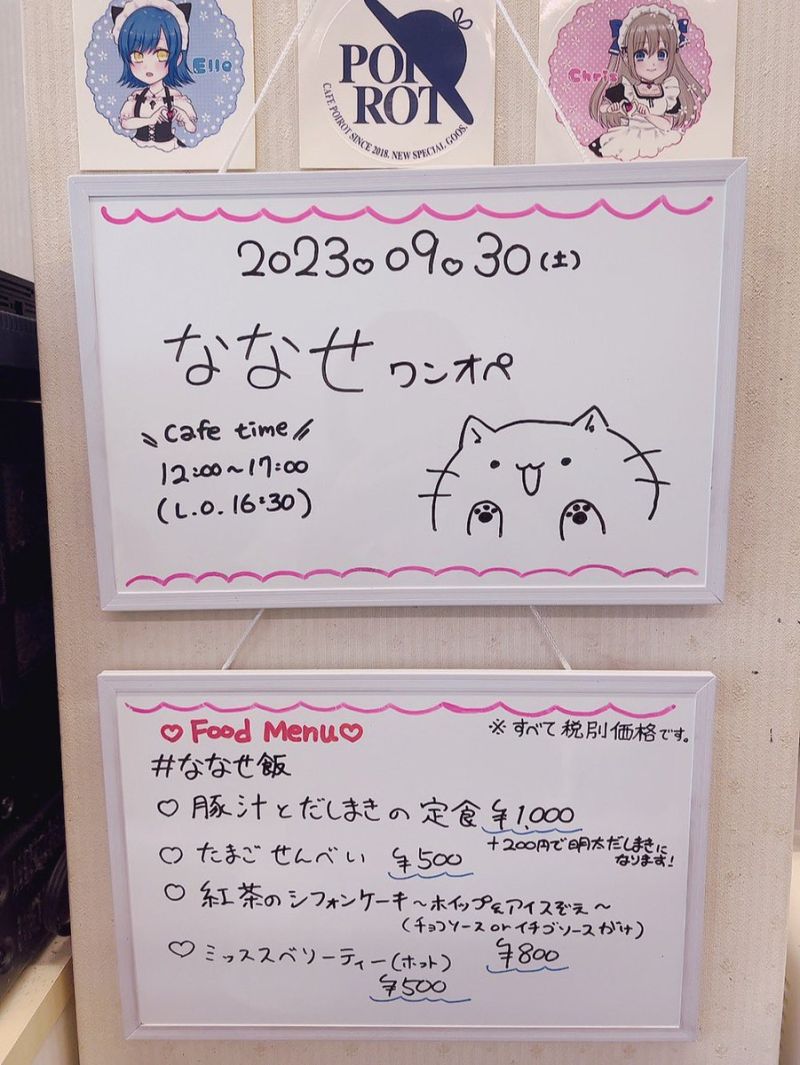 Ello
POI
ROT
CAFE POIROT SINCE 2018. NEW SPECIAL GOOS.
Chris
2023♡09♡30(土)
ななせ ワンオペ
\\Cafe time//
12:00～17:00
(L.O.16:30)
♡Food Menu♡
※すべて税別価格です。
#ななせ飯
♡豚汁とだしまきの定食 ¥1,000
+200円で明太だしまきに
なります!
♡たまごせんべい ¥500
♡紅茶のシフォンケーキ～ホイップ&アイスぞえ～
(チョコソースorイチゴソースがけ)
¥800
♡ミッススベリーティー(ホット)
¥500